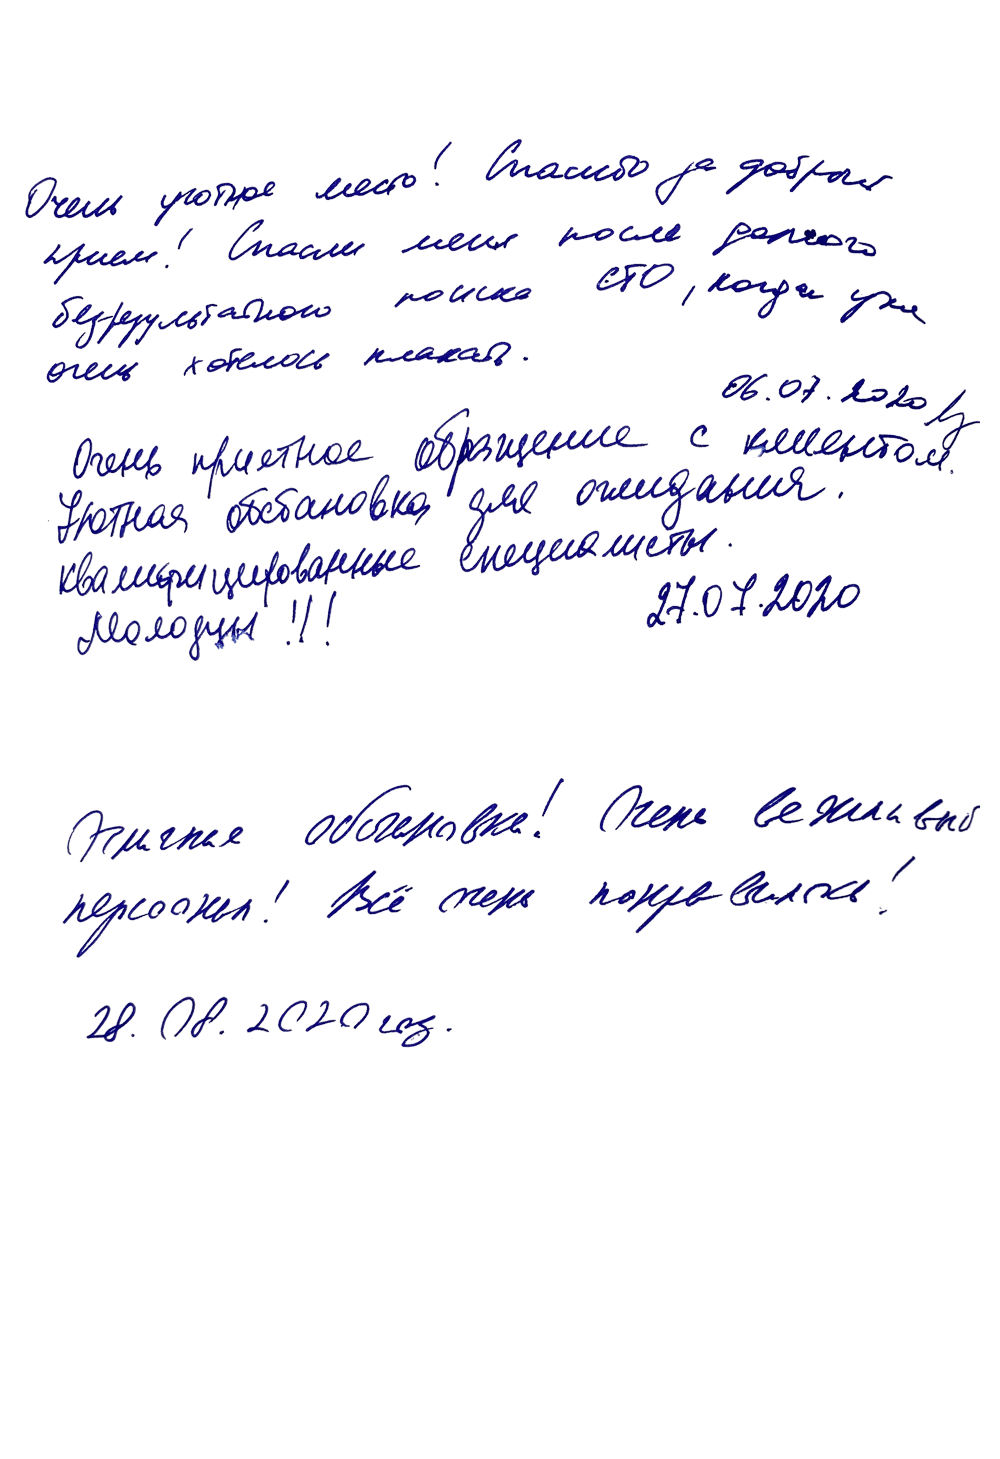 Очень уютное место! Спасибо за добрый
прием! Спасли меня после долгого
безрезультатного поиска СТО, когда уже
очень хотелось плакать.
06.07.2020
Очень приятное обращение с клиентом.
Уютная обстановка для ожидания.
квалифицированные специалисты.
Молодцы!!!
27.07.2020
Отличная обстановка! Очень вежливый
персонал! Всё очень понравилось!
28.08.2020 год.